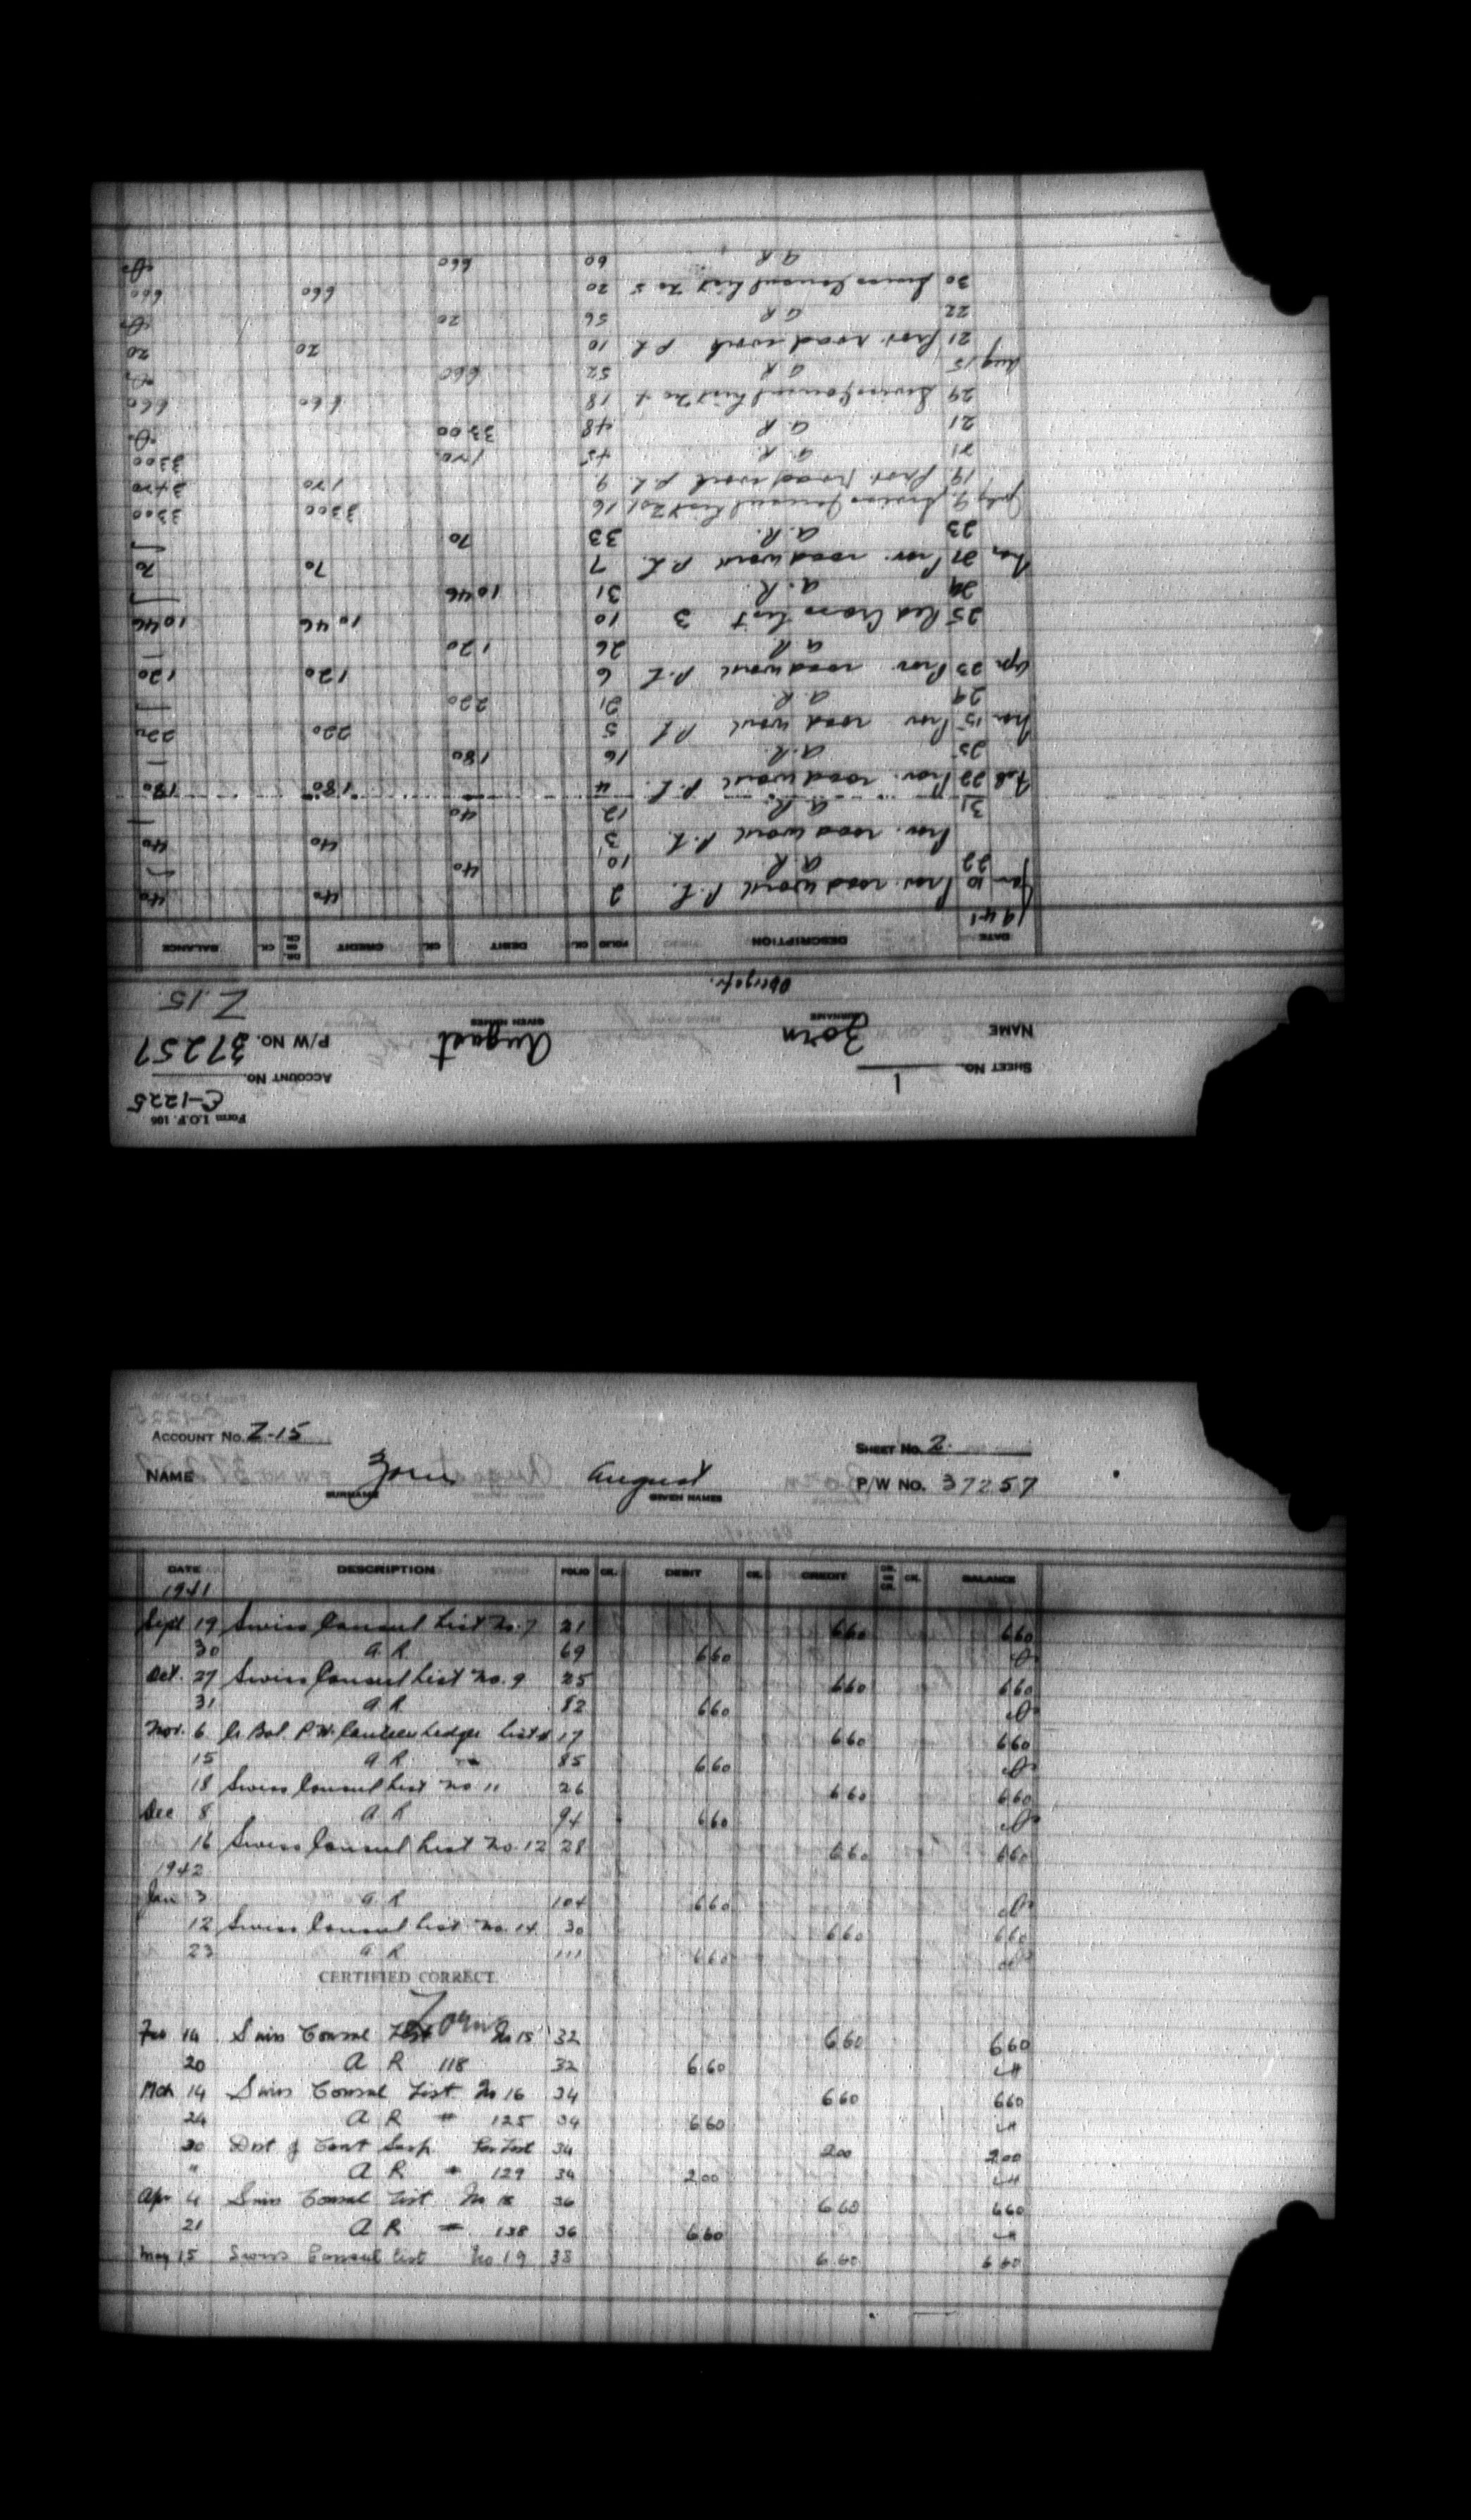 Form I.O.P. 106
C-1225
SHEET NO. 1 ACCOUNT NO.
NAME Zorn August P/W NO. 37257
SURNAME GIVEN NAMES
Obergefr. Z.15.
DATE DESCRIPTION FOLIO CK. DEBIT CK. CREDIT DR. OR CR. CK. BALANCE
1941
Jan 10 Prov. road work P.L. 2 40 40
22 A R 10 40 —
Prov. road work P.L. 3 40 40
31 A R 12 40 —
Feb 22 Prov. road work P.L. 4 180 180
25 A.R. 16 180 —
Mar 15 Prov road work P.L 5 220 220
29 A.R. 21 220 —
Apr 23 Prov. road work P.L 6 120 120
A R 26 120 —
25 Red Cross List 3 10 1046 1046
29 A.R. 31 1046 —
21 Prov. road work P.L. 7 70 70
23 A.R. 33 70 —
July 9 Swiss Consul List No 1 16 3300 3300
19 Prov. Road work P.L. 9 120 3420
21 A.R. 45 120 3300
21 A R 48 3300 0
29 Swiss Consul List No 4 18 660 660
Aug 15 A R 52 660 0
21 Prov. road work P.L 10 20 20
22 A R 56 20 0
30 Swiss Consul List No 5 20 660 660
A R 60 660 0
ACCOUNT NO. Z-15 SHEET NO. 2
NAME Zorn August P/W NO. 37257
SURNAME GIVEN NAMES
DATE DESCRIPTION FOLIO CK. DEBIT CK. CREDIT DR. OR CR. CK. BALANCE
1941
Sept 19 Swiss Consul List No. 7 21 660 660
30 A. R. 69 660 0
Oct. 27 Swiss Consul List No. 9 25 660 660
31 A R 82 660 0
Nov. 6 Cr Bal. P.W. Canteen Ledger List 17 660 660
15 A R 85 660 0
18 Swiss Consul List No 11 26 660 660
Dec 8 A R 94 660 0
16 Swiss Consul List No. 12 28 660 660
1942
Jan 3 A R 104 660 0
12 Swiss Consul List No. 14 30 660 660
23 A R 111 660 0
CERTIFIED CORRECT.
Zorn
Feb 14 Swiss Consul List No 15 32 660 660
20 A R 118 32 660
Mch 14 Swiss Consul List No 16 34 660 660
24 A R " 125 34 660
30 Dist of Cant Susp. Per List 34 200 200
" A R " 129 34 200
Apr 4 Swiss Consul List No 18 36 660 660
21 A R " 138 36 660
May 15 Swiss Consul List No 19 38 660 660